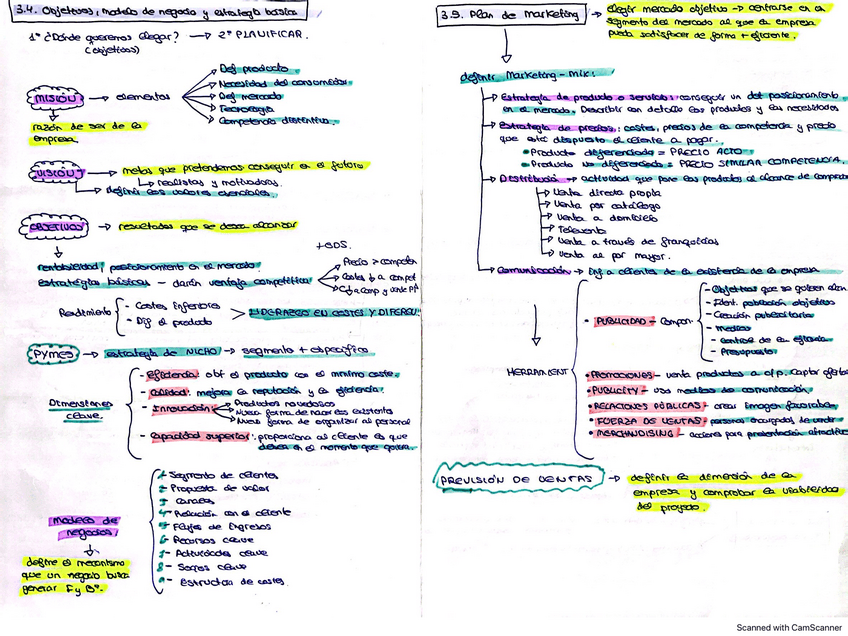 3.4. Objetivos, modelo de negocio y estrategia básica
1º ¿Dónde queremos llegar? → 2º PLANIFICAR.
(objetivos)
MISIÓN → elementos
Def producto.
Necesidad del consumidor
Def mercado
Tecnología
Competencia distintiva.
razón de ser de la
empresa
VISIÓN → metas que pretendemos conseguir en el futuro
realistas y motivadoras.
define los valores esenciales.
OBJETIVOS → resultados que se desea alcanzar
+ODS.
rentabilidad, posicionamiento en el mercado.
estrategias básicas - darán ventaja competitiva
Precio > competen
Costes
Rendimiento
- Costes inferiores
- Dif el producto
LIDERAZGO EN COSTES Y DIFEREN
PYMES → estrategia de NICHO → segmento + específico
Dimensiones
clave.
- Eficiencia: obt el producto con el mínimo coste.
- Calidad: mejora la reputación y la eficiencia.
- Innovación
Productos novedosos
Nueva forma de hacer los existentes
Nuevas formas de organizar al personal
- Capacidad superior: proporciona al cliente lo que
desea en el momento que quiera.
modelo de
negocios
define el mecanismo
que un negocio busca
generar I y Bº.
1- Segmento de clientes
2- Propuesta de valor
3- Canales
4- Relación con el cliente
5- Flujos de ingresos
6- Recursos clave
7- Actividades clave
8- Socios clave
9- Estructura de costes.
3.5. Plan de marketing
elegir mercado objetivo → centrarse en un
segmento del mercado al que la empresa
pueda satisfacer de forma + eficiente.
definir Marketing-mix:
Estrategia de producto o servicio: conseguir un det posicionamiento
en el mercado. Describir con detalle los productos y las necesidades
Estrategia de precios: costes, precios de la competencia y precio
que esté dispuesto el cliente a pagar.
• Producto diferenciado = PRECIO ALTO
• Producto no diferenciado = PRECIO SIMILAR COMPETENCIA.
Distribución → actividad que pone los productos al alcance de comprado
Venta directa propia
Venta por catálogo
Venta a domicilio
Televenta
Venta a través de franquicias
Venta al por mayor.
Comunicación → inf a clientes de la existencia de la empresa
HERRAMIENT
• PUBLICIDAD - Compon
- Objetivos que se quieren alcan
- Ident. población objetivo
- Creación publicitaria
- Medios
- Control de la eficacia
- Presupuesto
• PROMOCIONES - venta productos a c/p. Captar ofertas
• PUBLICITY - uso medios de comunicación.
• RELACIONES PÚBLICAS - crear imagen favorable.
• FUERZA DE VENTAS - personas encargadas de vender
• MERCHANDISING - acciones para presentación atractiva
PREVISIÓN DE VENTAS → definir la dimensión de la
empresa y comprobar la viabilidad
del proyecto.
Scanned with CamScanner